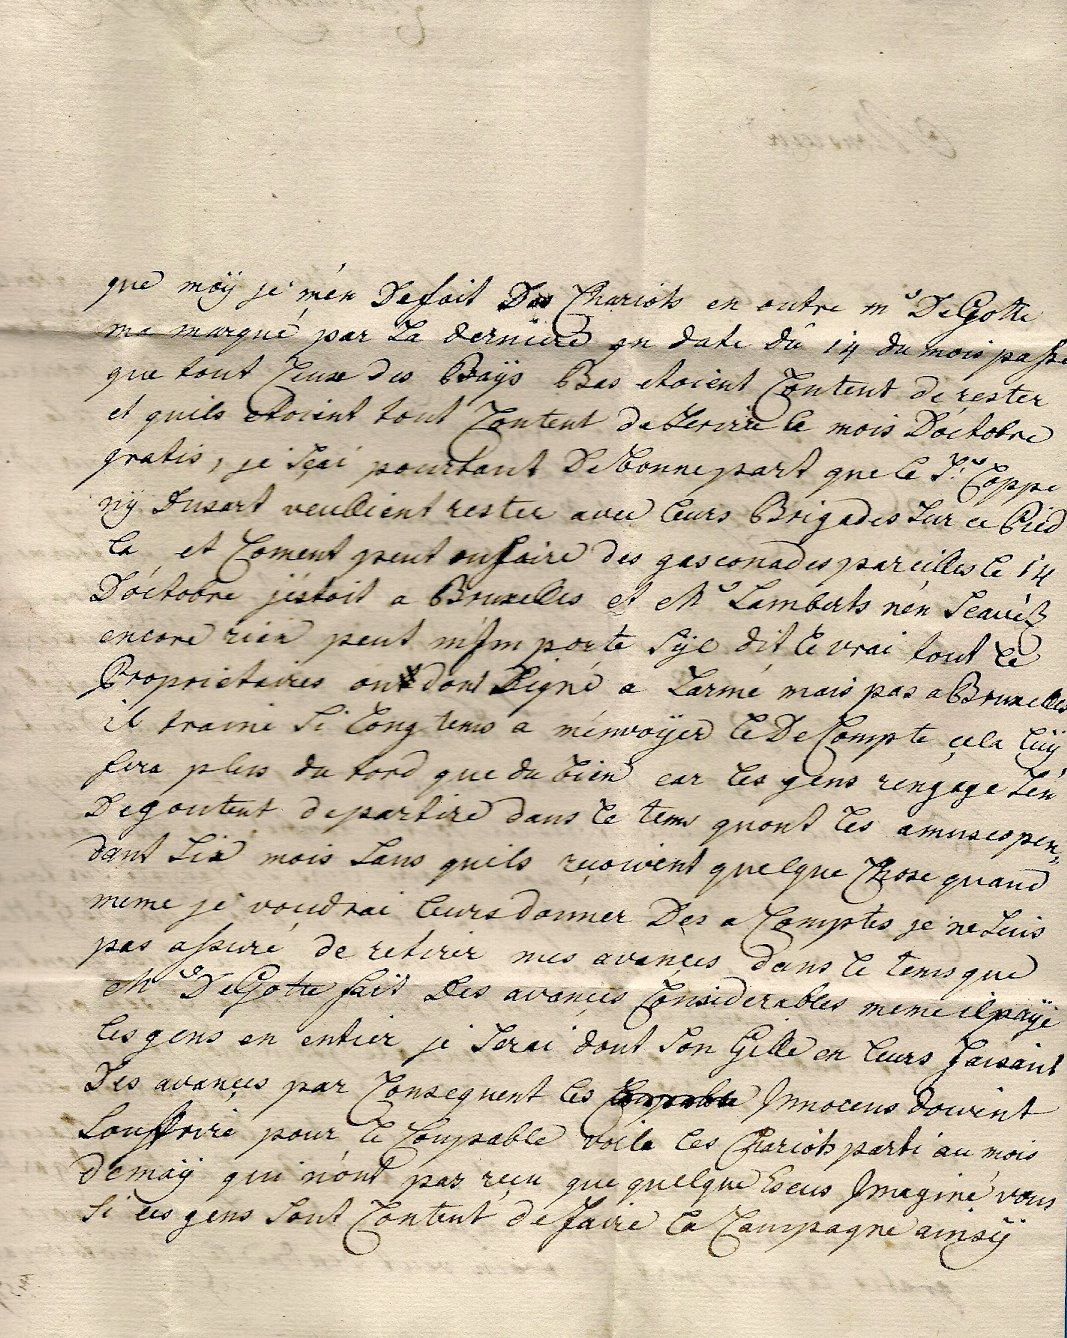 que moÿ je m'en Defait Des Chariots en outre mr De Gotte
ma marqué par La derniere en date du 14 du mois passe
que tout Ceux des Baÿs Bas etoient Content de rester
et quils etoient tout Content de servire le mois D'octobre
gratis, je sçai pourtant De bonne part que le Sr Coppe
nÿ Dusart veullient rester avec leurs Brigades sur ce Pied
la et Coment peut on faire des gasconades pareilles le 14
D'octobre j'estoit a Bruxelles et Mr Lamberts n'en sçavéz
encore rien peut m'Importe sÿe dit le vrai tout le
Proprietaires ont dont signé a Larmé mais pas a Bruxelles
il traine si Long tems a m'envoÿer le De Compte cela luÿ
fera plus du tord que du bien car les gens rengage s'en
Degoutent de partire dans le tems quont les amuse pen,
dant six mois sans quils reçoivent quelque Chose quand
meme je voudrai leurs donner Des a Comptes je ne suis
pas assuré de retirer mes avances dans le tems que
Mr De Gotte fait Des avances Considerables meme il paÿe
les gens en entier je serai dont son Gille en leurs faisant
Des avances par Consequent les Innocens doivent
souffrire pour le Coupable voila les Chariots parti au mois
de maÿ qui n'ont pas reçu que quelque Ecus Imaginé vous
si ces gens sont Content de faire la Campagne ainsÿ